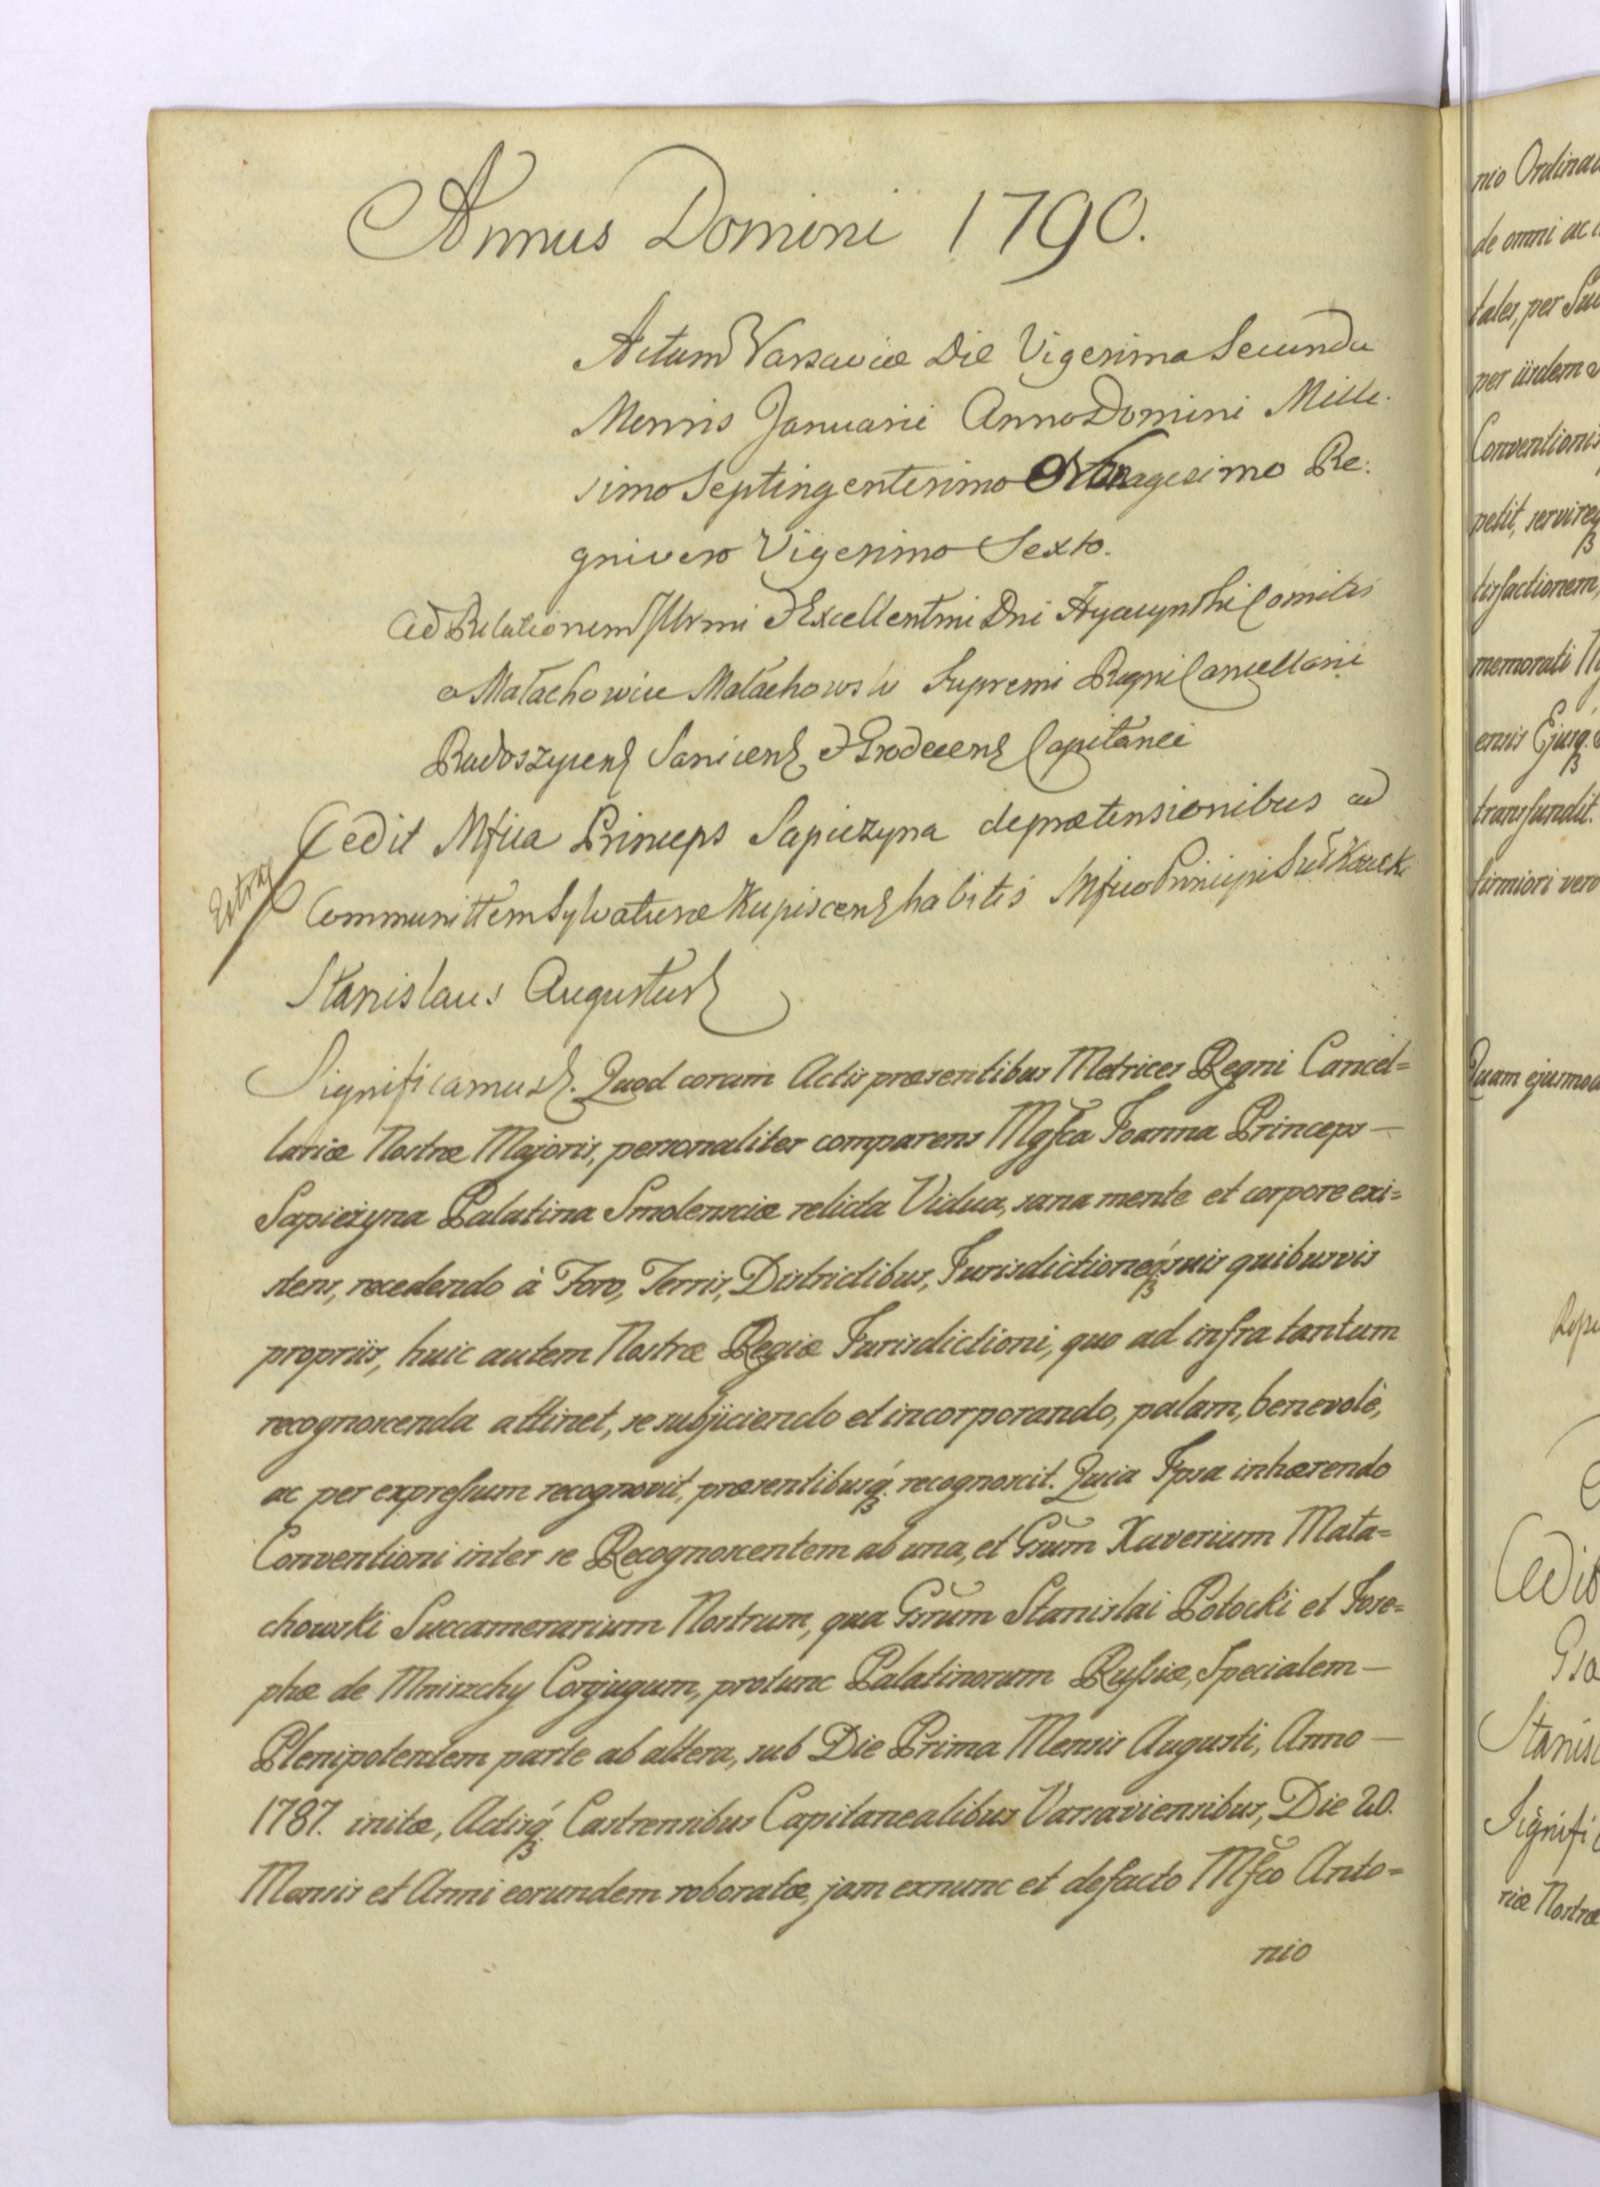 Annus Domini 1790.
Actum Varsaviæ Die Vigesima Secunda
Mensis Januarii Anno Domini Mille-
simo Septingentesimo Nonagesimo Re-
gni vero Vigesimo Sexto.
Ad Relationem Illrmi & Excellentmi Dni Hyacynthi Comitis
a Małachowice Małachowski Supremi Regni Cancellarii
Radoszycens Sanicens & Grodecens Capitanei
Cedit Mfica Princeps Sapiezyna de prætensionibus ad
Communittem Sylvaturæ Kupiscens habitis Mfico Principi Sułkowsk
Stanislaus Augustus
Significamus. Quod coram Actis præsentibus Metrices Regni Cancel=
lariæ Nostræ Majoris, personaliter comparens Mgfca Joanna Princeps —
Sapiezyna Palatina Smolensciæ relicta Vidua, sana mente et corpore exi=
stens, recedendo à Foro, Terris, Districtibus, Jurisdictioneq́; suis quibusvis
propriis, huic autem Nostræ Regiæ Jurisdictioni, quo ad infra tantum
recognoscenda attinet, se subjiciendo et incorporando, palam, benevolè,
ac per expressum recognovit, præsentibusq́; recognoscit. Quia Ipsa inhærendo
Conventioni inter se Recognoscentem ab una, et Gsum Xaverium Mała=
chowski Succamerarium Nostrum, qua Gsrum Stanislai Potocki et Jose=
phæ de Mniszchy Conjugum, protunc Palatinorum Russiæ, Specialem —
Plenipotentem parte ab altera, sub Die Prima Mensis Augusti, Anno —
1787. initæ, Actisq́; Castrensibus Capitanealibus Varsaviensibus, Die 20.
Mensis et Anni eorundem roboratæ, jam exnunc et defacto Mfco Anto=
nio
nio
de omni ac
tales, per
per iisdem
Conventionis
petit,
tisfactionem,
memorati
ensis Ejusq́;
transfundit.
firmiori vero
Quam ejusmod
Stanis
Signifi
riæ Nostræ